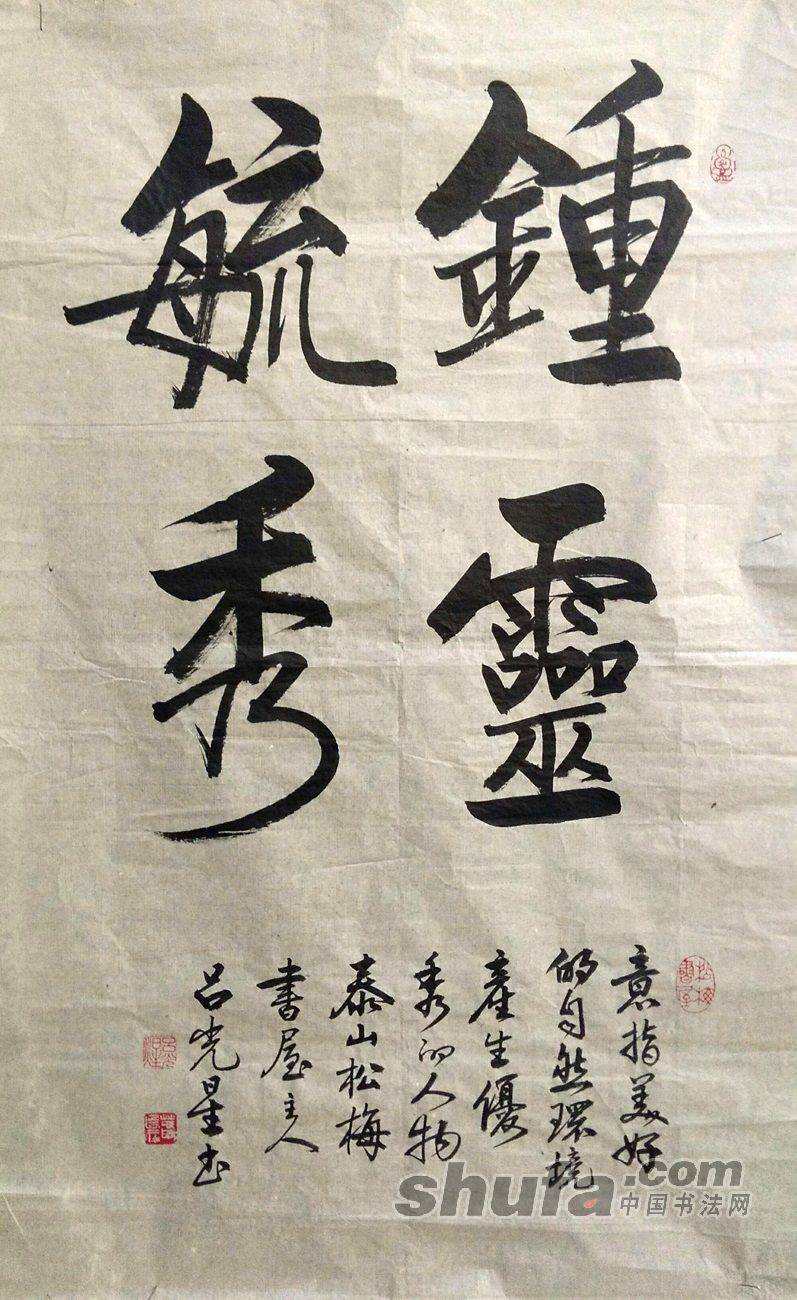 鍾靈
毓秀
意指美好
的自然環境
產生優
秀的人物
泰山松梅
書屋主人
呂光星书
shufa.com
中国书法网